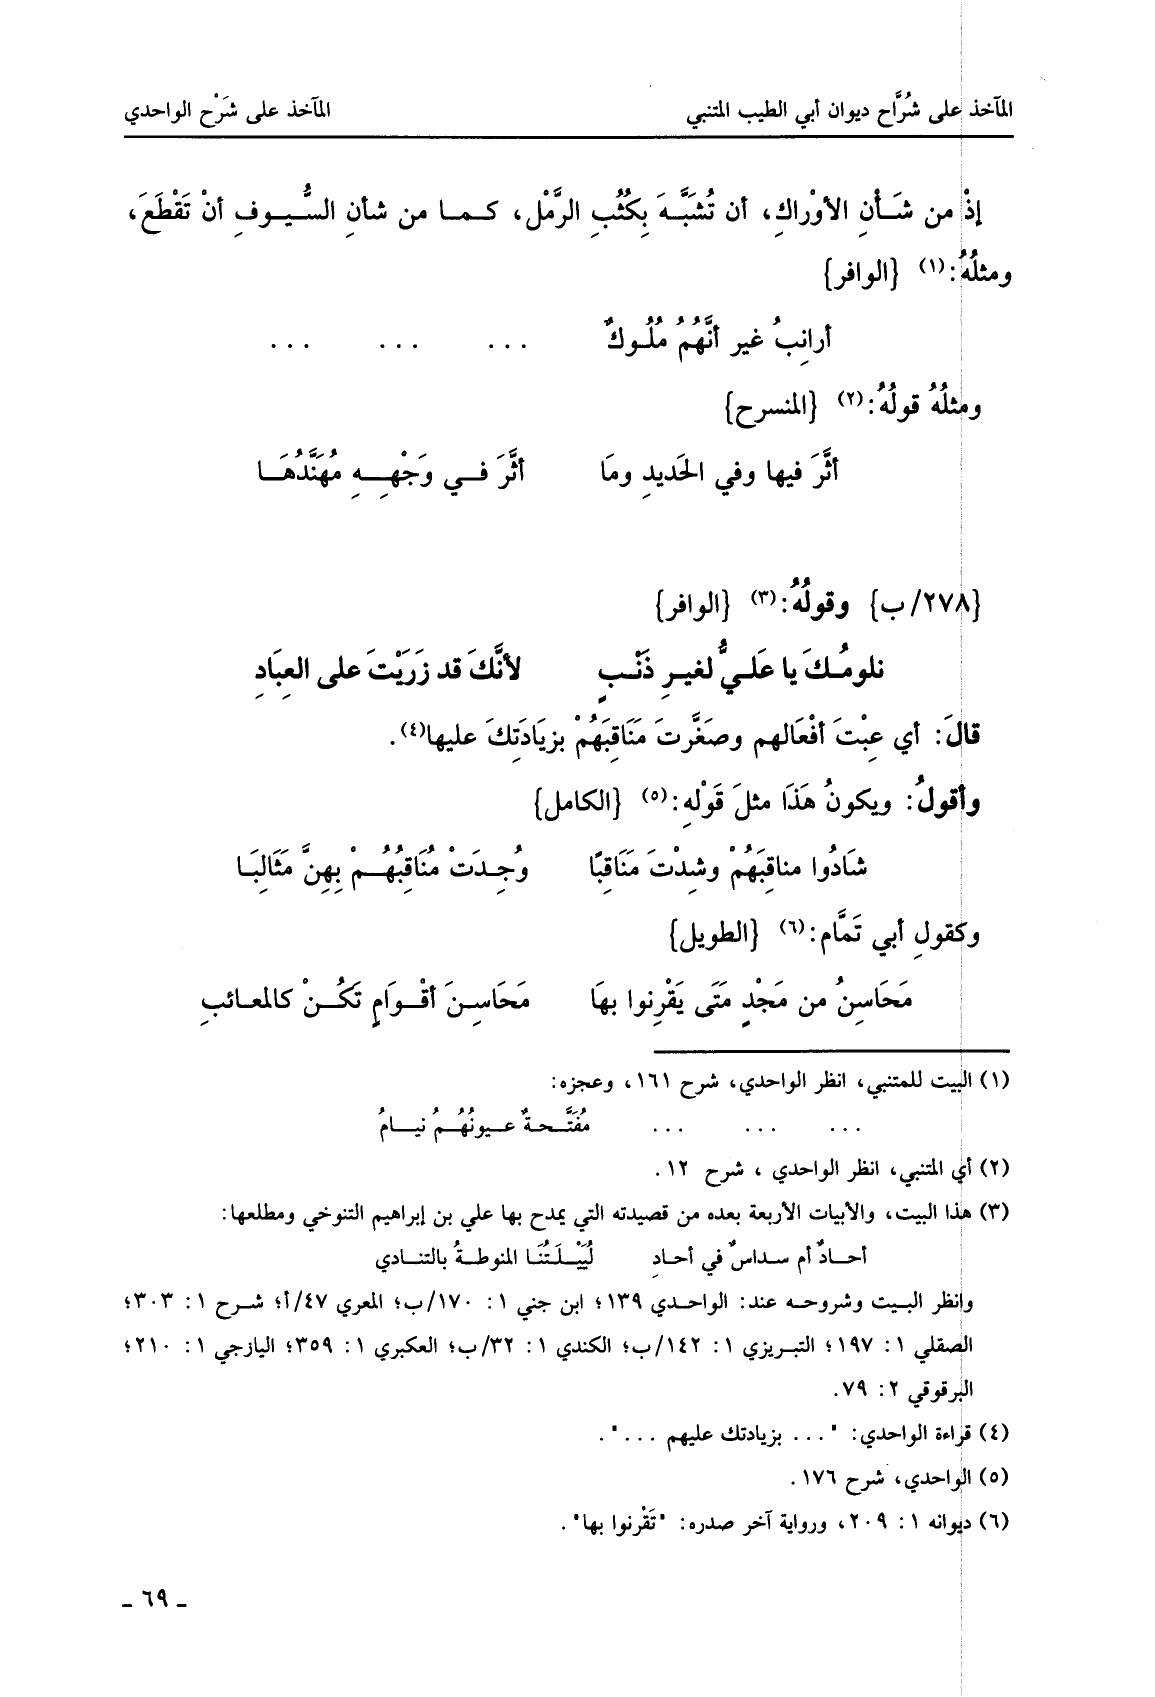 المآخذ على شُرَّاح ديوان أبي الطيب المتنبي المآخذ على شَرْح الواحدي
إذْ من شَأنِ الأوْراكِ، أن تُشَبَّهَ بِكُثُبِ الرَّمْل، كما من شأنِ السُّيوفِ أنْ تَقْطَعَ،
ومثلُهُ:(١) {الوافر}
أرانِبُ غير أنَّهُمُ مُلُوكٌ ... ... ...
ومثلُهُ قولُهُ:(٢) {المنسرح}
أثَّرَ فيها وفي الحَديدِ ومَا أثَّرَ في وَجْهِهِ مُهَنَّدُهَا
{٢٧٨/ب} وقولُهُ:(٣) {الوافر}
نلومُكَ يا عَليُّ لغيرِ ذَنْبٍ لأنَّكَ قد زَرَيْتَ على العِبَادِ
قالَ: أي عِبْتَ أفْعَالهم وصَغَّرتَ مَنَاقِبَهُمْ بزيَادَتِكَ عليها(٤).
وأقولُ: ويكونُ هَذَا مثلَ قَوْلِهِ:(٥) {الكامل}
شَادُوا مناقِبَهُمْ وشِدْتَ مَنَاقِبًا وُجِدَتْ مُنَاقِبُهُمْ بِهِنَّ مَثَالِبَا
وكقولِ أبي تَمَّام:(٦) {الطويل}
مَحَاسِنُ من مَجْدٍ مَتَى يَقْرِنوا بهَا مَحَاسِنَ أقْوَامٍ تَكُنْ كالمعائبِ
(١) البيت للمتنبي، انظر الواحدي، شرح ١٦١، وعجزه:
... ... ... مُفَتَّحةٌ عيونُهُمُ نيامُ
(٢) أي المتنبي، انظر الواحدي ، شرح ١٢.
(٣) هذا البيت، والأبيات الأربعة بعده من قصيدته التي يمدح بها علي بن إبراهيم التنوخي ومطلعها:
أحادٌ أم سداسٌ في أحادِ لُيَيْلَتُنَا المنوطةُ بالتنادي
وانظر البيت وشروحه عند: الواحدي ١٣٩؛ ابن جني ١: ١٧٠/ب؛ المعري ٤٧/أ؛ شرح ١: ٣٠٣؛
الصقلي ١: ١٩٧؛ التبريزي ١: ١٤٢/ب؛ الكندي ١: ٣٢/ب؛ العكبري ١: ٣٥٩؛ اليازجي ١: ٢١٠؛
البرقوقي ٢: ٧٩.
(٤) قراءة الواحدي: "... بزيادتك عليهم ...".
(٥) الواحدي، شرح ١٧٦.
(٦) ديوانه ١: ٢٠٩، ورواية آخر صدره: "تَقْرنوا بها".
ـ ٦٩ ـ